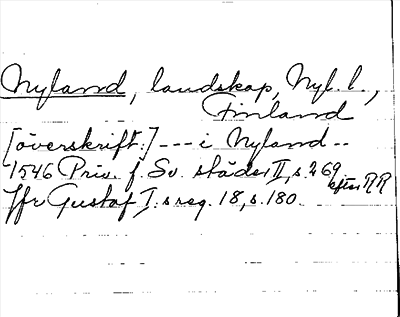 Nyland, landskap, Nyl. l.,
Finland
[överskrift:] --- i Nyland --
1546 Priv. f. Sv. städer II, s. 269 efter RR
Jfr Gustaf I:s reg. 18, s. 180.